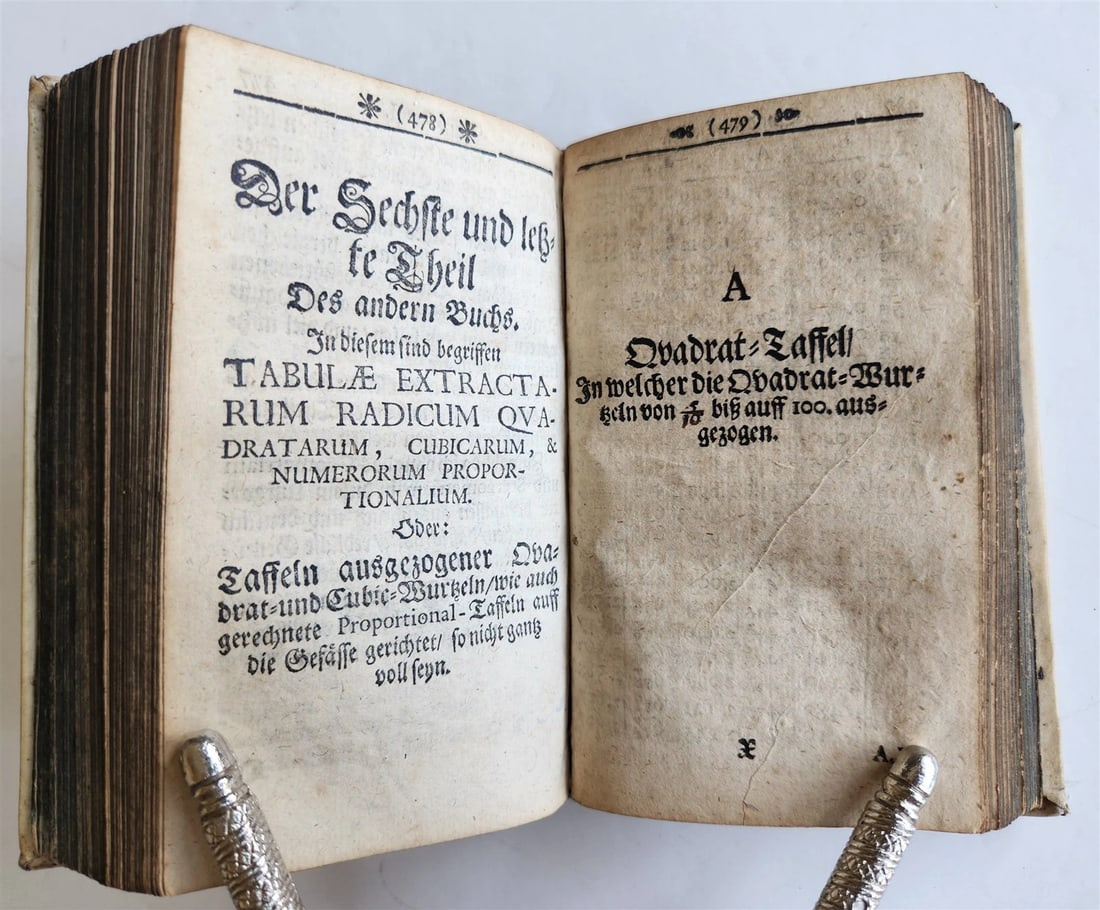 (478)
Der Sechste und letz-
te Theil
Des andern Buchs.
In diesem sind begriffen
TABULÆ EXTRACTA-
RUM RADICUM QVA-
DRATARUM, CUBICARUM, &
NUMERORUM PROPOR-
TIONALIUM.
Oder:
Taffeln ausgezogener Qva-
drat-und Cubic-Wurtzeln/wie auch
gerechnete Proportional-Taffeln auff
die Gefässe gerichtet/ so nicht gantz
voll seyn.
(479)
A
Qvadrat-Taffel/
In welcher die Qvadrat-Wur-
tzeln von biß auff 100. aus-
gezogen.
X A.